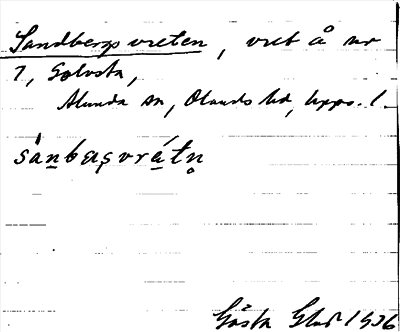 Sandbergsvreten, vret å nr
1, Golvsta,
Alunda sn, Olands hd, Upps. l.
sánbasvrétn̥
Gösta 1936